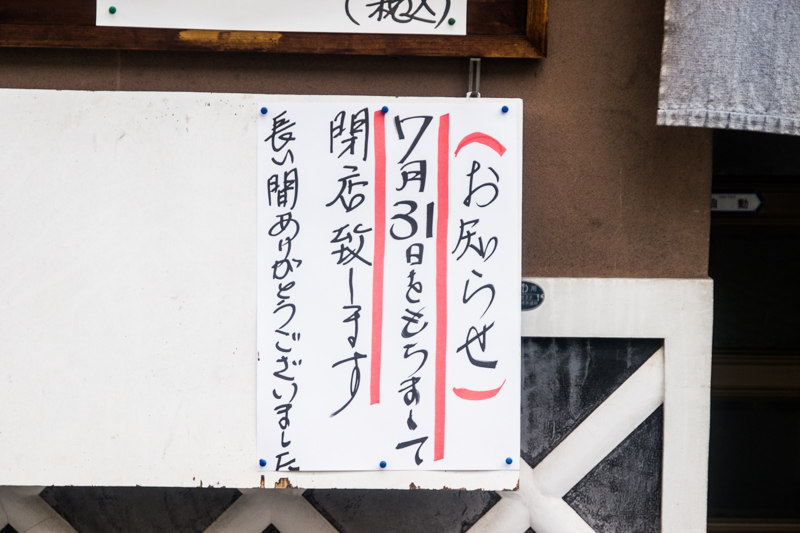 (税込)
(お知らせ)
7月31日をもちまして
閉店致します
長い間ありがとうございました